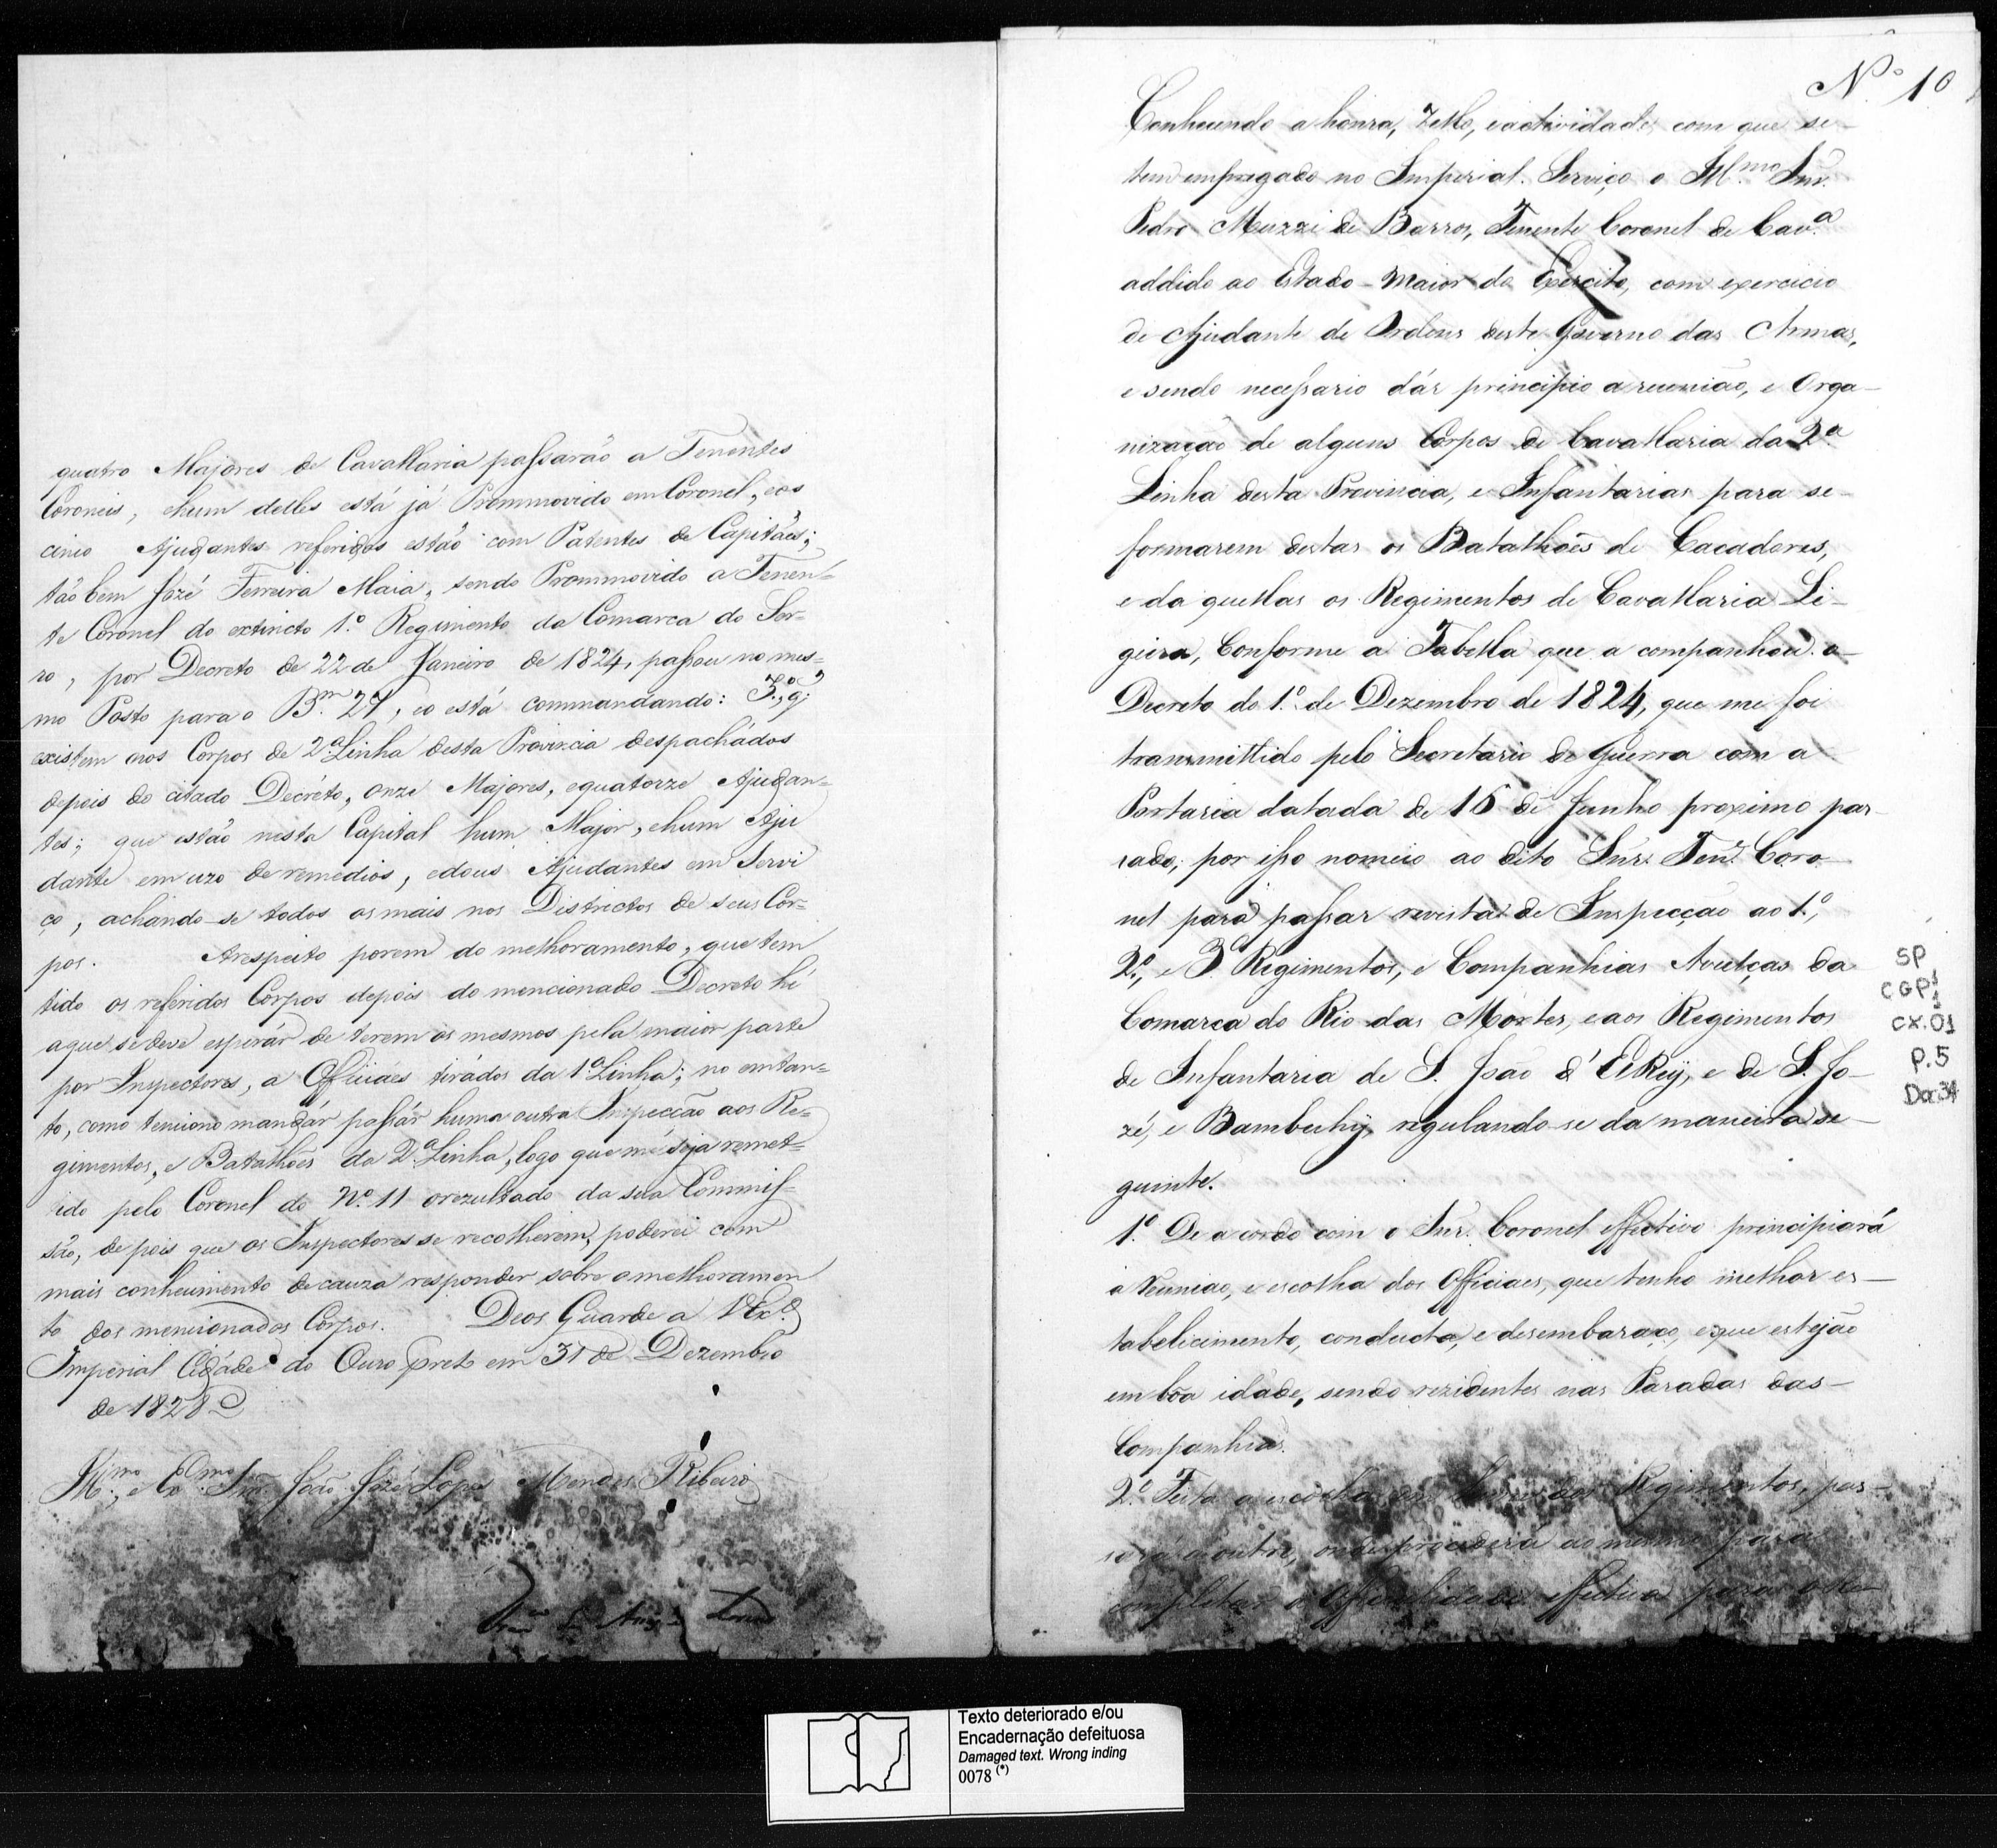 quatro Majores de Cavallaria passarão a Tenentes
Coroneis, ehum delles está já Prommovido em Coronel, eos
cinco Ajudantes referidos estão com Patentes de Capitães;
tãobem Jozé Ferreira Maia, sendo Prommovido a Tenen=
te Coronel do extincto 1º Regimento da Comarca do Ser=
ro, por Decreto de 22 de Janeiro de 1824, passou no mes=
mo Posto para o B.m 27, eo está commandando:
existem nos Corpos de 2ª Linha desta Provincia despachádos
depois do citado Decréto, onze Majores, equatorze Ajudan=
tes; que estão nesta Capital hum Major, ehum Aju
dante em uzo de remedios, edous Ajudantes em Servi
ço, achando-se todos os mais nos Districtos de seus Cor=
pos. Arespeito porem do melhoramento, que tem
tido os referidos Corpos depois do mencionado Decreto hé
aque se deve esperár de terem os mesmos pela maior parte
por Inspectores, a Officiáes tirádos da 1ª Linha; no emtan=
to, como tenciono mandár passár huma outra Inspecção aos Re=
gimentos, e Batalhões da 2ª Linha, logo que me seja remet=
ido pelo Coronel do Nº 11 orezultado da sua Commis=
são, depois que os Inspectores se recolherem, poderei com
mais conhecimento decauza responder sobre omelhoramen
to dos mencionados Corpos. Deos Guarde a V Exª
Imperial Cidáde do Ouro preto em 31 de Dezembro
de 1828
Illmo. e Exmo. Snr. João Jozé Lopes Mendes Ribeiro
Nº 10
Conhecendo a honra, Zello, eactividade com que se-
tem empregado no Imperial Serviço o Illmo Snr.
Pedro Muzzi de Barros, Tenente Coronel de Cavª
addido ao Estado-Maior do Exercito, com exercicio
de Ajudante de Ordens deste Governo das Armas,
e sendo necessario dár principio a reunião, e Orga-
nização de alguns Corpos de Cavallaria da 2ª
Linha desta Provincia, e Infantarias para se-
formarem destas os Batalhões de Cacadores,
e da quellas os Regimentos de Cavallaria Li-
geira, Conforme a Tabella que a companhou o-
Decreto do 1º de Dezembro de 1824, que me foi
transmittido pelo Secretario de Guerra com a
Portaria datada de 16 de Junho proximo pas-
sado; por isso nomeio ao dito Snr. Ten.e Coro-
nel para passar revista de Inspecção ao 1º,
2º, e 3º Regimentos, e Companhias Avulças da
Comarca do Rio das Mortes, eaos Regimentos
de Infantaria de S. João d'ElRey, e de S. Jo-
zé, e Bambuhy, regulando-se da maneira se-
guinte.
1º De acordo com o Snr. Coronel effectivo principiará
a reunião, e escolha dos Officiaes, que tenho melhor es-
tabelicimento, conducta, e desembaraço, eque estejão
em boa idade, sendo rezidentes nas Paradas das-
Companhias.
2º Feita a escolha em hum dos Regimentos, pas-
sará a outro, onde procederá ao mesmo para
completar a Officialidade effectiva para
SP
CGP1
1
CX.01
P.5
Doc34
Texto deteriorado e/ou
Encadernação defeituosa
Damaged text. Wrong inding
0078 (*)